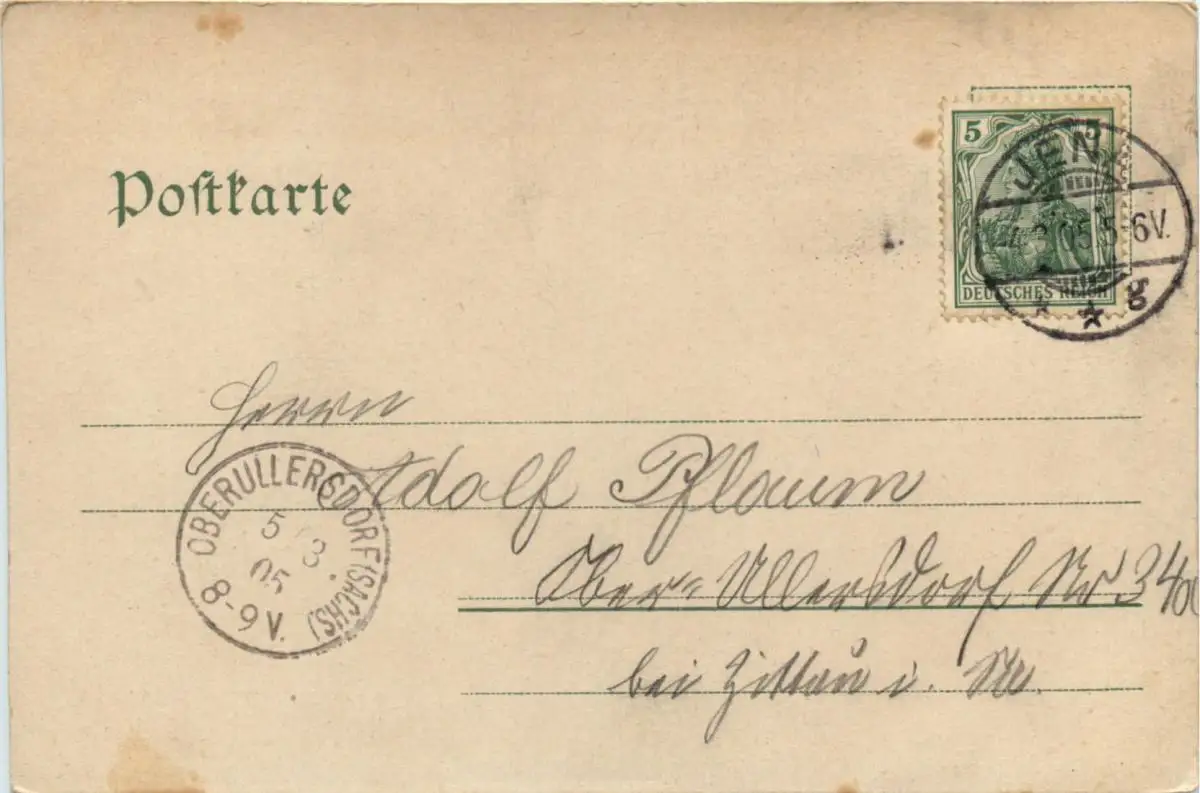 Postkarte
5 5
JENA
05 5-6V.
DEUTSCHES REICH
g
Herrn
Adolf Pflaum
Ober-Ullersdorf No 34
bei Zittau i.
OBERULLERSDORF (SACHS)
5 3
05
8-9 V.